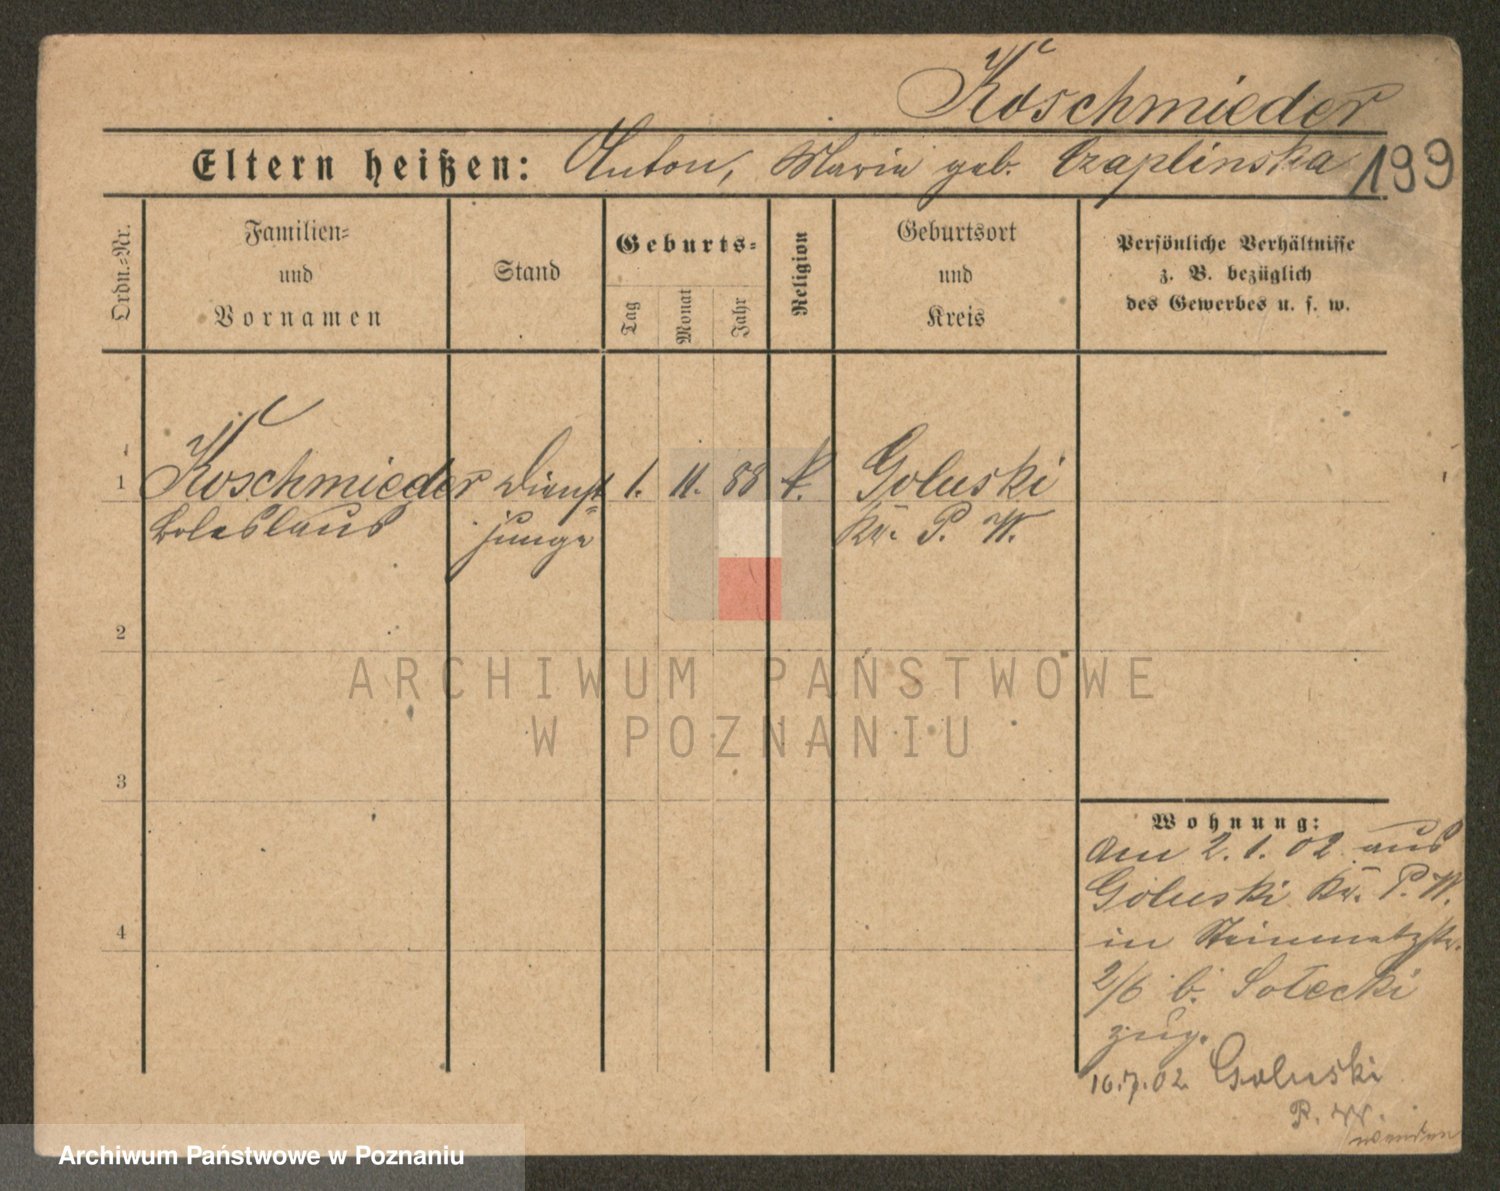 Koschmieder
Eltern heißen: Anton, Maria geb. Czaplinska 199
Ordn.-Nr.
Familien-
und
Vornamen
Stand
Geburts-
Tag
Monat
Jahr
Religion
Geburtsort
und
Kreis
Persönliche Verhältnisse
z. B. bezüglich
des Gewerbes u. s. w.
1 Koschmieder Dienst 1. 11. 88 k. Goluski
Boleslaus junge Kr. P. W.
2
3
4
Wohnung:
Am 2. 1. 02 aus
Goluski Kr. P. W.
in Steinmetzstr.
2/6 b. Sotecki
zug.
16.7.02 Goluski
P. W.
wenden
ARCHIWUM PAŃSTWOWE
W POZNANIU
Archiwum Państwowe w Poznaniu